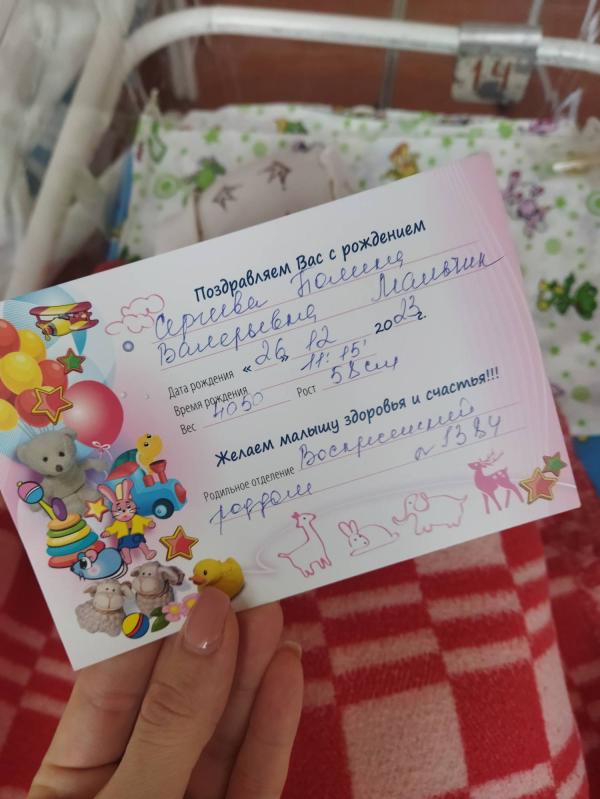 14
Поздравляем Вас с рождением
Сергиева Полина
Валерьевна Мальчик
Дата рождения « 26 » 12 2023 г.
Время рождения 11:15'
Вес 4050 Рост 58 см
Желаем малышу здоровья и счастья!!!
Родильное отделение Воскресенский
роддом №1384